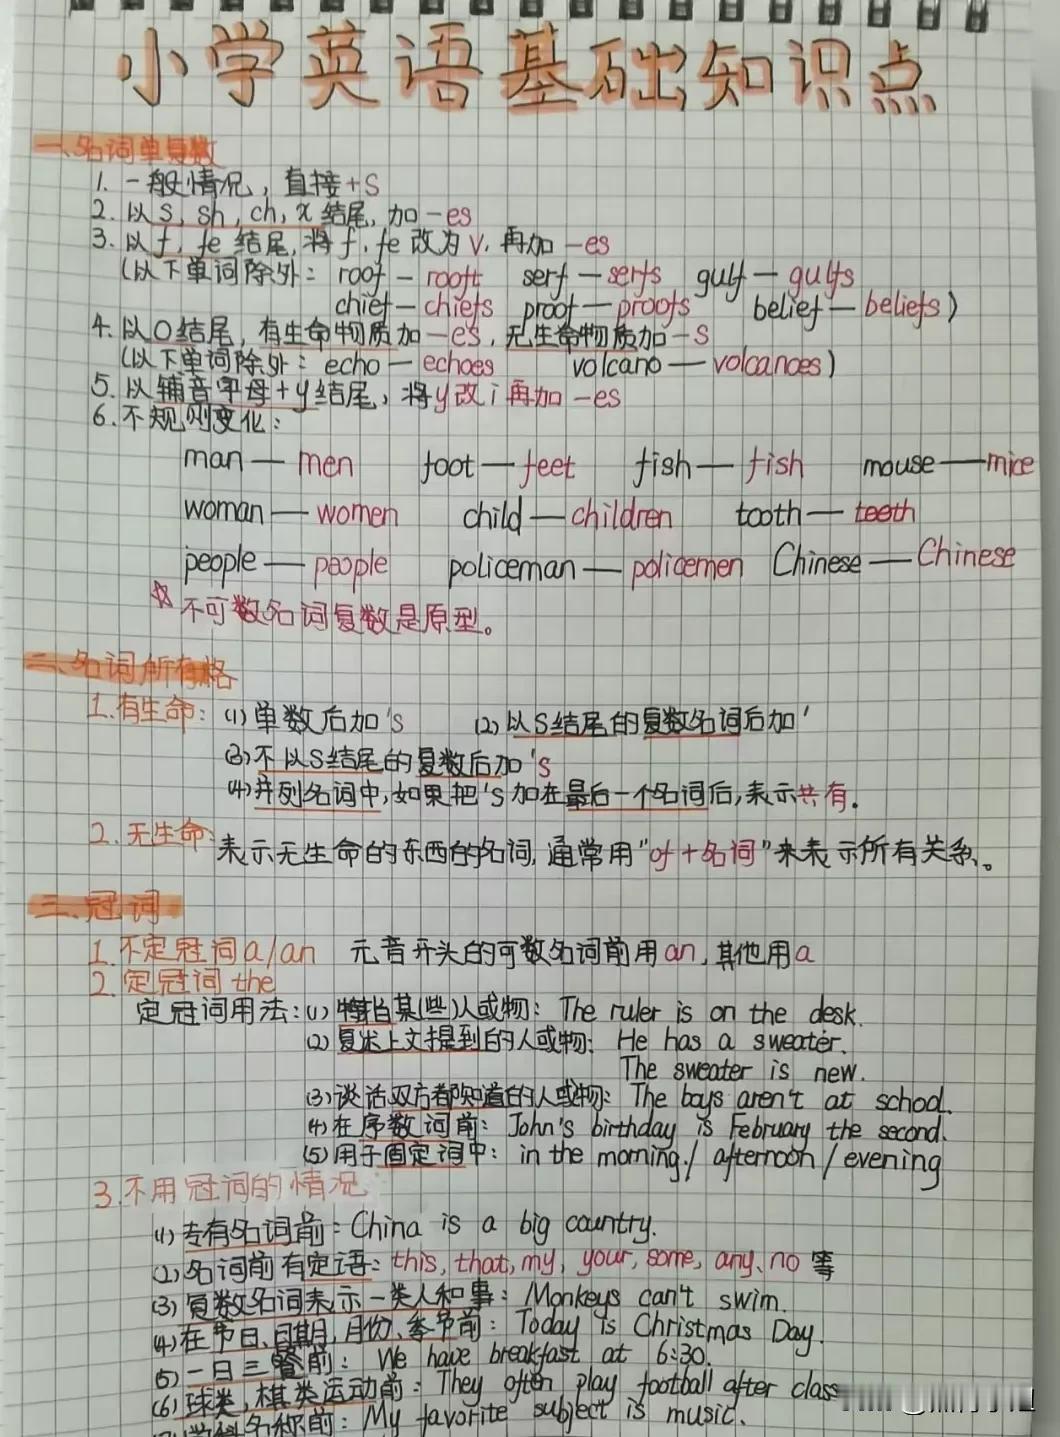 小学英语基础知识点
一.名词单复数
1. 一般情况，直接+s
2. 以s, sh, ch, x 结尾, 加 -es
3. 以f, fe 结尾, 将f, fe 改为v, 再加 -es
(以下单词除外: roof - rooft serf - serfs gulf - gulfs
chief - chiefs proof - proofs belief - beliefs)
4. 以O结尾, 有生命物质加 -es, 无生命物质加 -s
(以下单词除外: echo - echoes volcano - volcanoes)
5. 以辅音字母+y结尾, 将y改i再加 -es
6. 不规则变化:
man - men foot - feet fish - fish mouse - mice
woman - women child - children tooth - teeth
people - people policeman - policemen Chinese - Chinese
☆不可数名词复数是原型。
二.名词所有格
1.有生命: (1)单数后加's (2)以S结尾的复数名词后加'
(3)不以S结尾的复数后加's
(4)并列名词中,如果把's加在最后一个名词后,表示共有.
2. 无生命: 表示无生命的东西的名词, 通常用"of+名词"来表示所有关系。
三.冠词
1.不定冠词a/an 元音开头的可数名词前用an, 其他用a
2.定冠词the
定冠词用法: (1)特指某(些)人或物: The ruler is on the desk.
(2)复述上文提到的人或物: He has a sweater.
The sweater is new.
(3)谈话双方都知道的人或物: The boys aren't at school.
(4)在序数词前: John's birthday is February the second.
(5)用于固定词中: in the morning / afternoon / evening
3.不用冠词的情况
(1)专有名词前: China is a big country.
(2)名词前有定语: this, that, my, your, some, any, no 等
(3)复数名词表示一类人和事: Monkeys can't swim.
(4)在节日、日期, 月份、季节前: Today is Christmas Day.
(5)一日三餐前: We have breakfast at 6:30.
(6)球类, 棋类运动前: They often play football after class
名称前: My favorite subject is music.